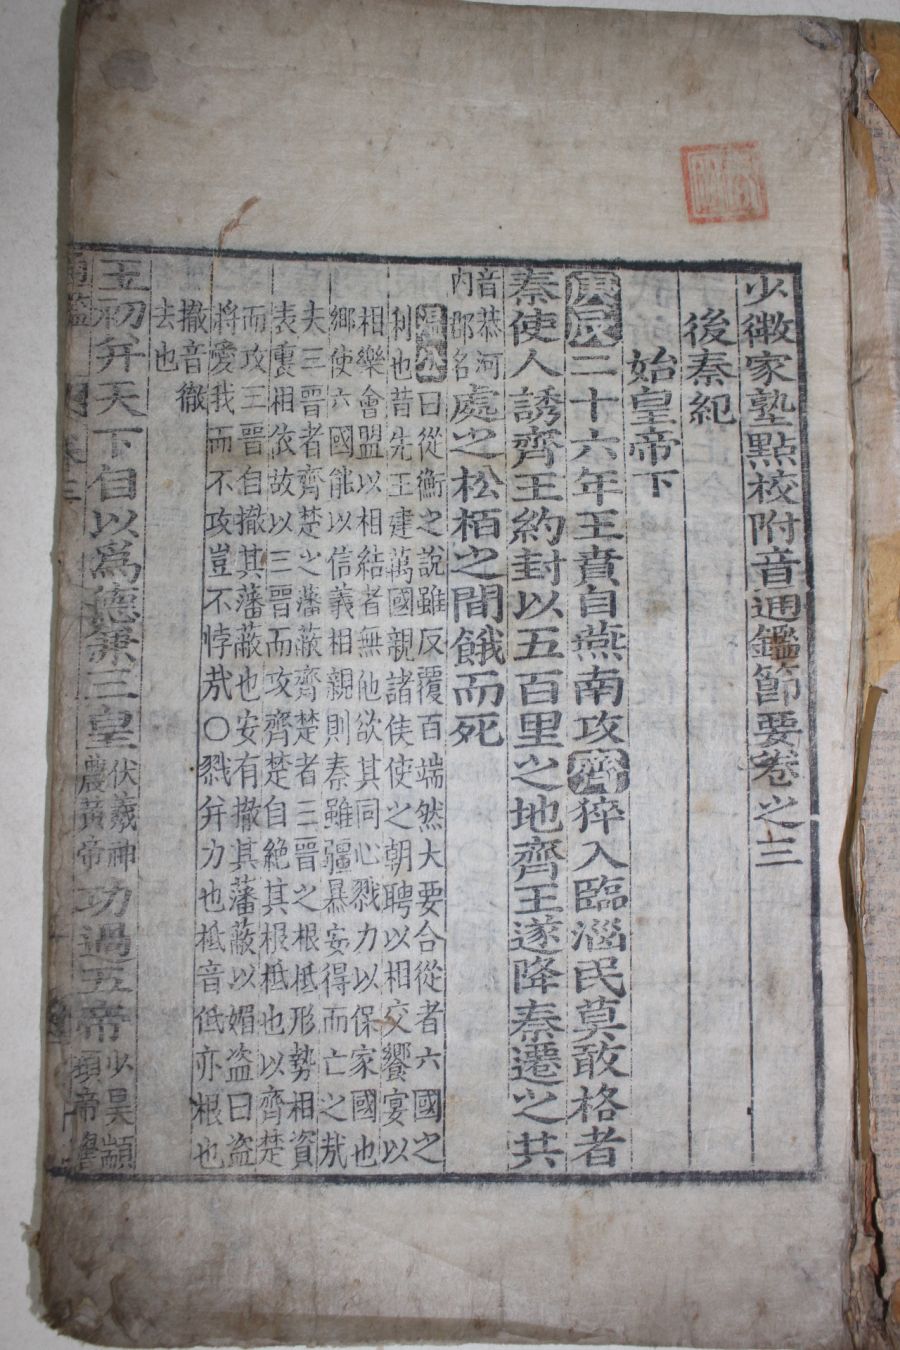 少微家塾點校附音通鑑節要卷之三
後秦紀
始皇帝下
庚辰二十六年王賁自燕南攻齊猝入臨淄民莫敢格者
秦使人誘齊王約封以五百里之地齊王遂降秦遷之共
音恭河
內郡名
處之松栢之間餓而死
溫公曰從衡之說雖反覆百端然大要合從者六國之
利也昔先王建萬國親諸侯使之朝聘以相交饗宴以
相樂會盟以相結者無他欲其同心戮力以保家國也
鄉使六國能以信義相親則秦雖彊暴安得而亡之㢤
夫三晋者齊楚之藩蔽齊楚者三晋之根柢形勢相資
表裏相依故以三晋而攻齊楚自絕其根柢也以齊楚
而攻三晋自撤其藩蔽也安有撤其藩蔽以媚盜曰盜
將愛我而不攻豈不悖㢤○戮幷力也柢音低亦根也
撤音徹
去也
王初幷天下自以爲德兼三皇
伏羲神
農黃帝
功過五帝
少昊顓
頊帝嚳